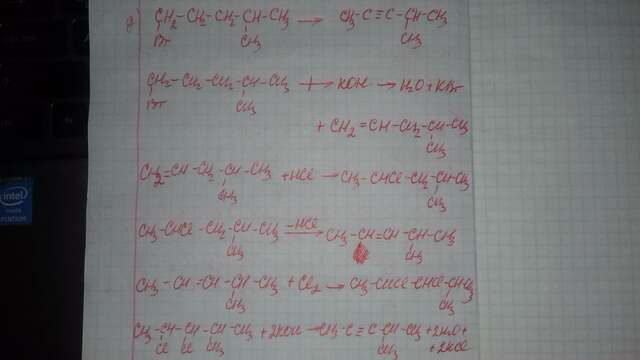 g) CH₂-CH₂-CH₂-CH-CH₃ → CH₃-C≡C-CH-CH₃
Br CH₃ CH₃
CH₂-CH₂-CH₂-CH-CH₃ + KOH → H₂O + KBr
Br CH₃
+ CH₂=CH-CH₂-CH-CH₃
CH₃
CH₂=CH-CH₂-CH-CH₃ + HCl → CH₃-CHCl-CH₂-CH-CH₃
CH₃ CH₃
CH₃-CHCl-CH₂-CH-CH₃ -HCl → CH₃-CH=CH-CH-CH₃
CH₃ CH₃
CH₃-CH=CH-CH-CH₃ + Cl₂ → CH₃-CHCl-CHCl-CHCH₃
CH₃ CH₃
CH₃-CH-CH-CH-CH₃ + 2KOH → CH₃-C≡C-CH-CH₃ + 2H₂O +
Cl Cl CH₃ CH₃ + 2KCl
intel
inside
PENTIUM